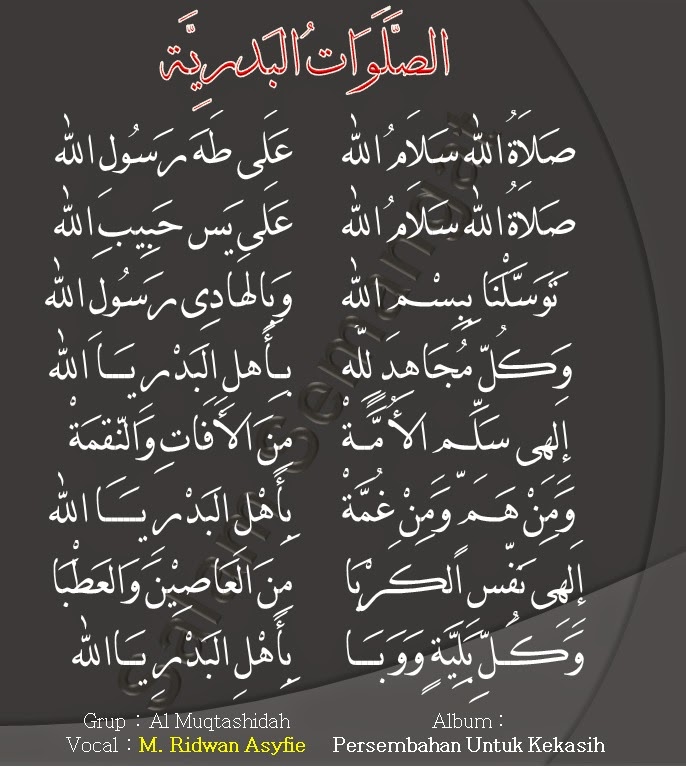 الصَّلَوَاتُ البَدرِيَّة
صَلَاةُ الله سَلَامُ الله عَلَى طَهَ رَسُولِ الله
صَلَاةُ الله سَلَامُ الله عَلَى يَس حَبِيبِ الله
تَوَسَّلْنَا بِبِسْمِ الله وَبِالهَادِى رَسُولِ الله
وَكُلّ مُجَاهِدَ لِلّه بِأَهلِ البَدْرِ يَا الله
إِلَهِى سَلِّمِ الأُمَّةْ مِنَ الأَفَاتِ وَالنّقمَةْ
وَمِنْ هَمّ وَمِنْ غُمَّةْ بِأَهْلِ البَدْرِ يَا الله
إِلَهِى نَفِّسِ الكَرْبَا مِنَ العَاصِيْنَ وَالعَطْبَا
وَكُلِّ بَلِيَّةٍ وَوَبَا بِأَهْلِ البَدْرِ يَا الله
Salam Semangat
Grup : Al Muqtashidah Album :
Vocal : M. Ridwan Asyfie Persembahan Untuk Kekasih